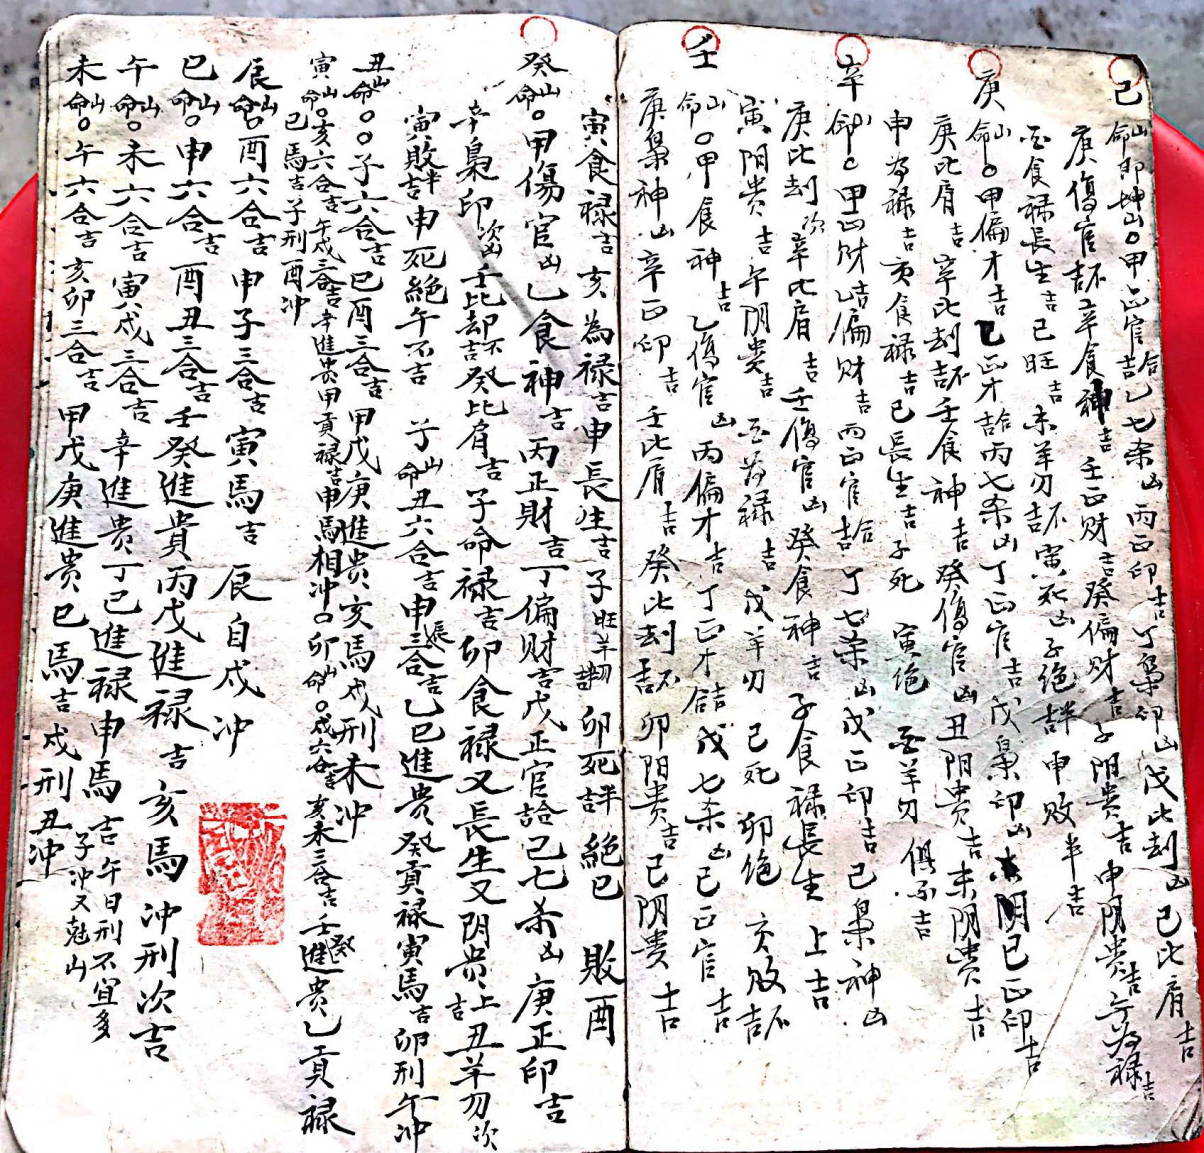 己山命即坤山○甲正官合吉乙七杀凶丙正印吉丁梟印凶戊比刦凶己比肩吉
庚傷官不吉辛食神吉壬正财吉癸偏财吉子阴貴吉申阴貴吉午為禄吉
酉食禄長生吉巳旺吉未羊刃不吉寅死凶子绝半吉申败半吉
庚山命○甲偏才吉乙正才合吉丙七杀凶丁正官吉戊梟印凶己正印吉
庚比肩吉辛比刦不吉壬食神吉癸傷官凶丑阴貴吉未阴貴吉
申為禄吉亥食禄吉巳長生吉子死 寅绝 酉羊刃俱不吉
辛山命○甲正财吉乙偏财吉丙正官合吉丁七杀凶戊正印吉己梟神凶
庚比刦次辛比肩吉壬傷官凶癸食神吉子食禄長生上吉
寅阴貴吉午阴貴吉酉為禄吉戌羊刃 巳死 卯绝 亥败不吉
壬山命○甲食神吉乙傷官凶丙偏才吉丁正才合吉戊七杀凶己正官吉
庚梟神凶辛正印吉壬比肩吉癸比刦不吉卯阳貴吉巳阴貴吉
寅食禄吉亥為禄吉申長生吉子旺羊刃半吉卯死半吉絕巳 敗酉
癸山命○甲傷官凶乙食神吉丙正財吉丁偏财吉戊正官合吉己七杀凶庚正印吉
辛梟印次凶壬比却不吉癸比肩吉子命禄吉卯食禄又長生又阴貴上吉丑羊刃次
寅敗半吉申死絕午不吉 子山命丑六合吉申辰三合吉乙巳進貴癸貢禄寅馬吉卯刑午冲
丑山命○○子六合吉巳酉三合吉甲戊庚進貴亥馬戌刑未冲
寅山命○亥六合吉午戌三合吉辛進貴甲貢禄吉申馬相冲○卯山命○戌六合吉亥未三合吉壬癸進貴乙貢禄
巳馬吉子刑酉冲
辰山命○酉六合吉申子三合吉寅馬吉 辰自戌冲
巳山命○申六合吉酉丑三合吉壬癸進貴丙戊進禄吉亥馬冲刑次吉
午山命○未六合吉寅戌三合吉辛進贵丁己進禄申馬吉午日刑不宜多
子冲又尅山
未山命○午六合吉亥卯三合吉甲戊庚進贵巳馬吉戌刑丑冲